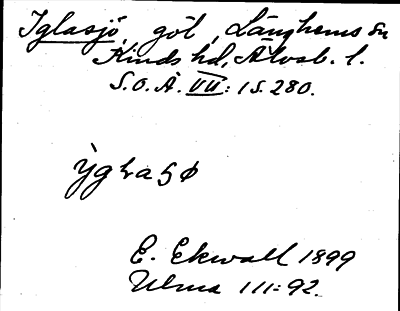 Iglasjö, göl, Länghems sn
Kinds hd, Älvsb. l.
S.O.Ä. VII: 1 S. 280.
E. Ekwall 1899
Ulma 111: 92.